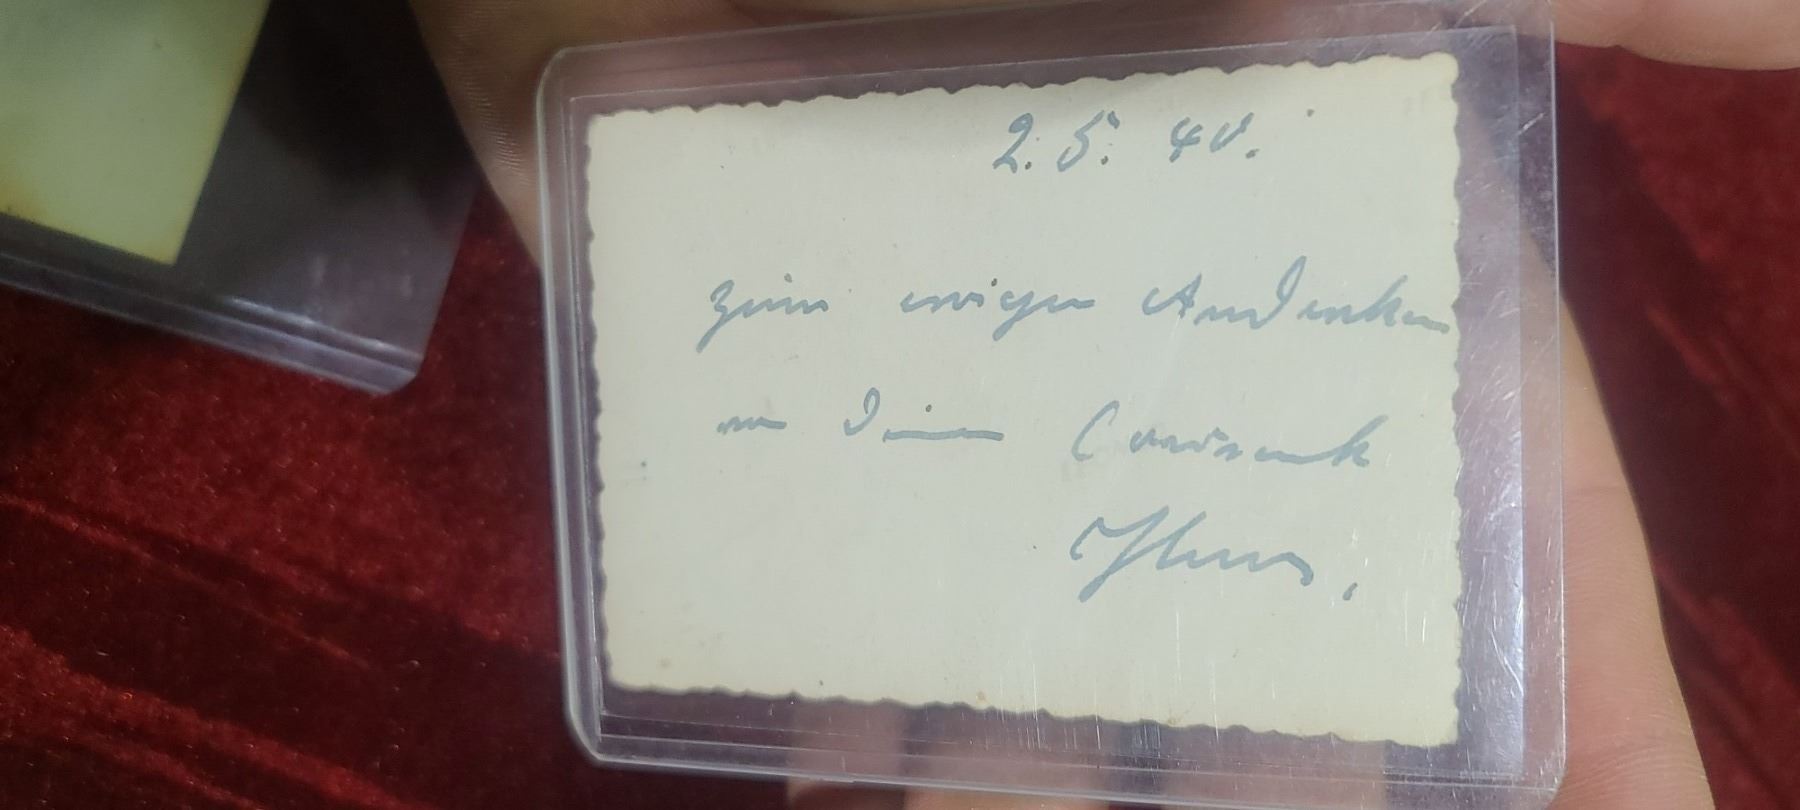 2. 5. 40.
zum ewigen Andenken
an Deinen